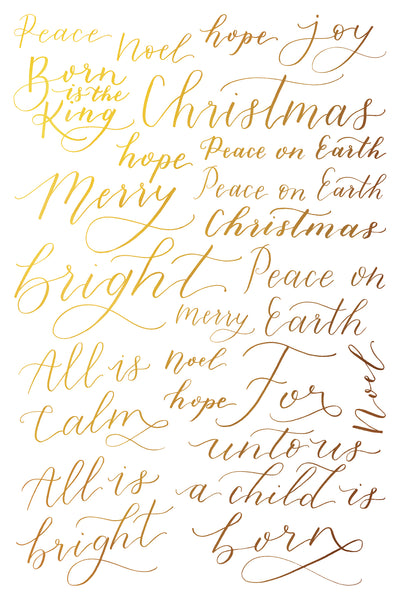 Peace
Noel
hope
joy
Born
is the
King
Christmas
hope
Peace on Earth
Merry
Peace on Earth
Christmas
bright
Peace on
Earth
merry
All is
Calm
Noel
hope
For
unto us
a child is
born
Noel
All is
bright